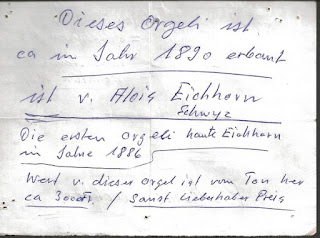 Dieses Orgeli ist
ca in Jahr 1890 erbaut
ist v. Alois Eichhorn
Schwyz
Die ersten Orgeli baute Eichhorn
im Jahre 1886
Wert v. dieser Orgel ist vom Ton her
ca 3000Fr / Sonst Liebehaber Preis